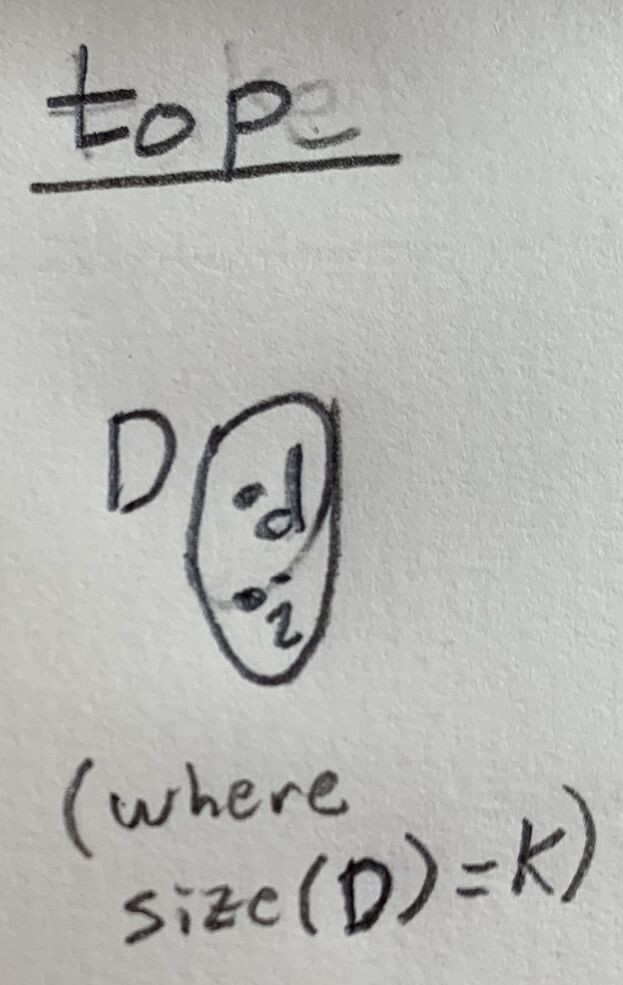 top
D
d
i
(where
size(D)=K)